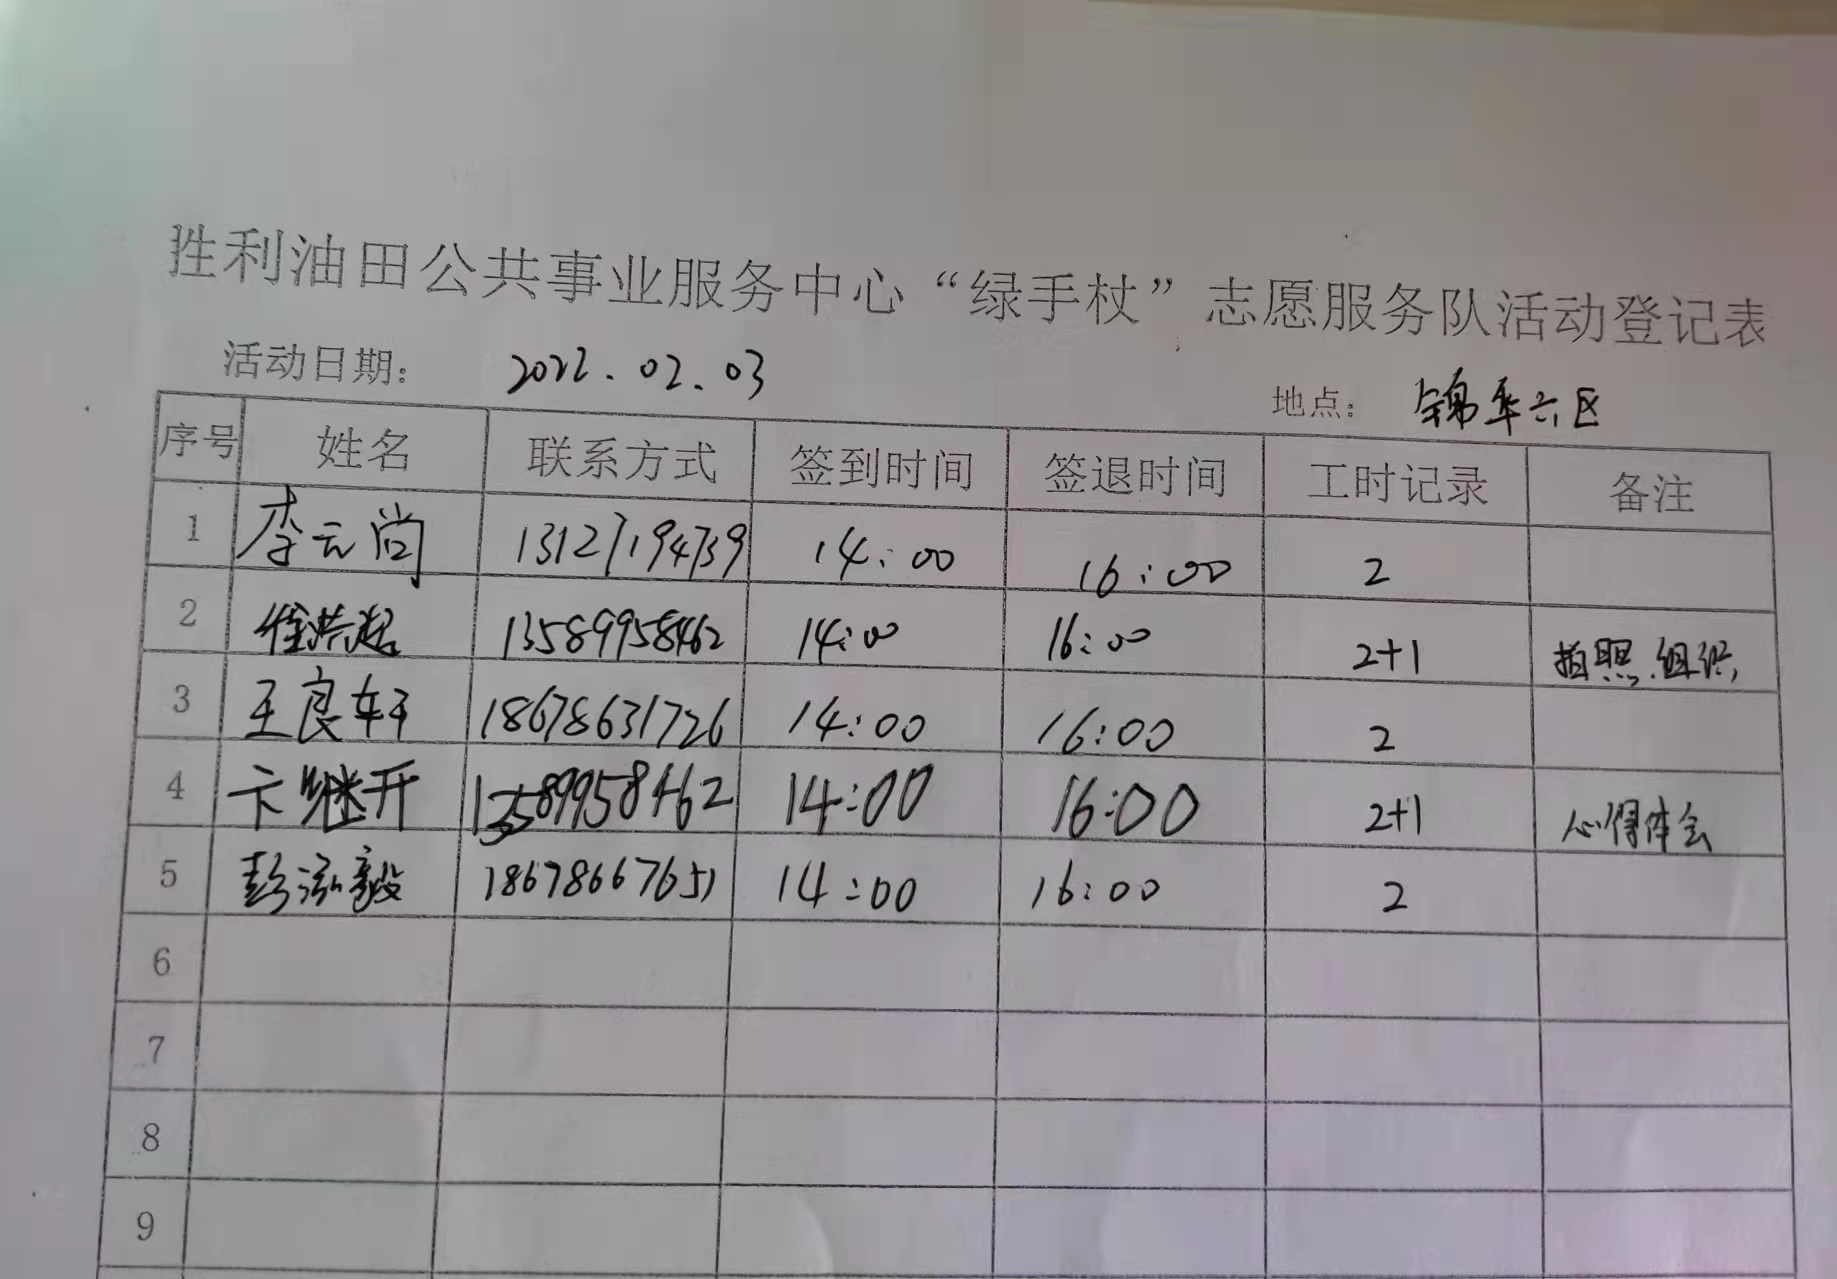 胜利油田公共事业服务中心“绿手杖”志愿服务队活动登记表
活动日期： 2022.02.03
地点： 锦华六区
序号 姓名 联系方式 签到时间 签退时间 工时记录 备注
1 李云尚 13127194739 14:00 16:00 2
2 徐洪超 13589958462 14:00 16:00 2+1 拍照.组织
3 王良轩 18678631726 14:00 16:00 2
4 卞继开 13589958462 14:00 16:00 2+1 心得体会
5 彭泓毅 18678667651 14:00 16:00 2
6
7
8
9